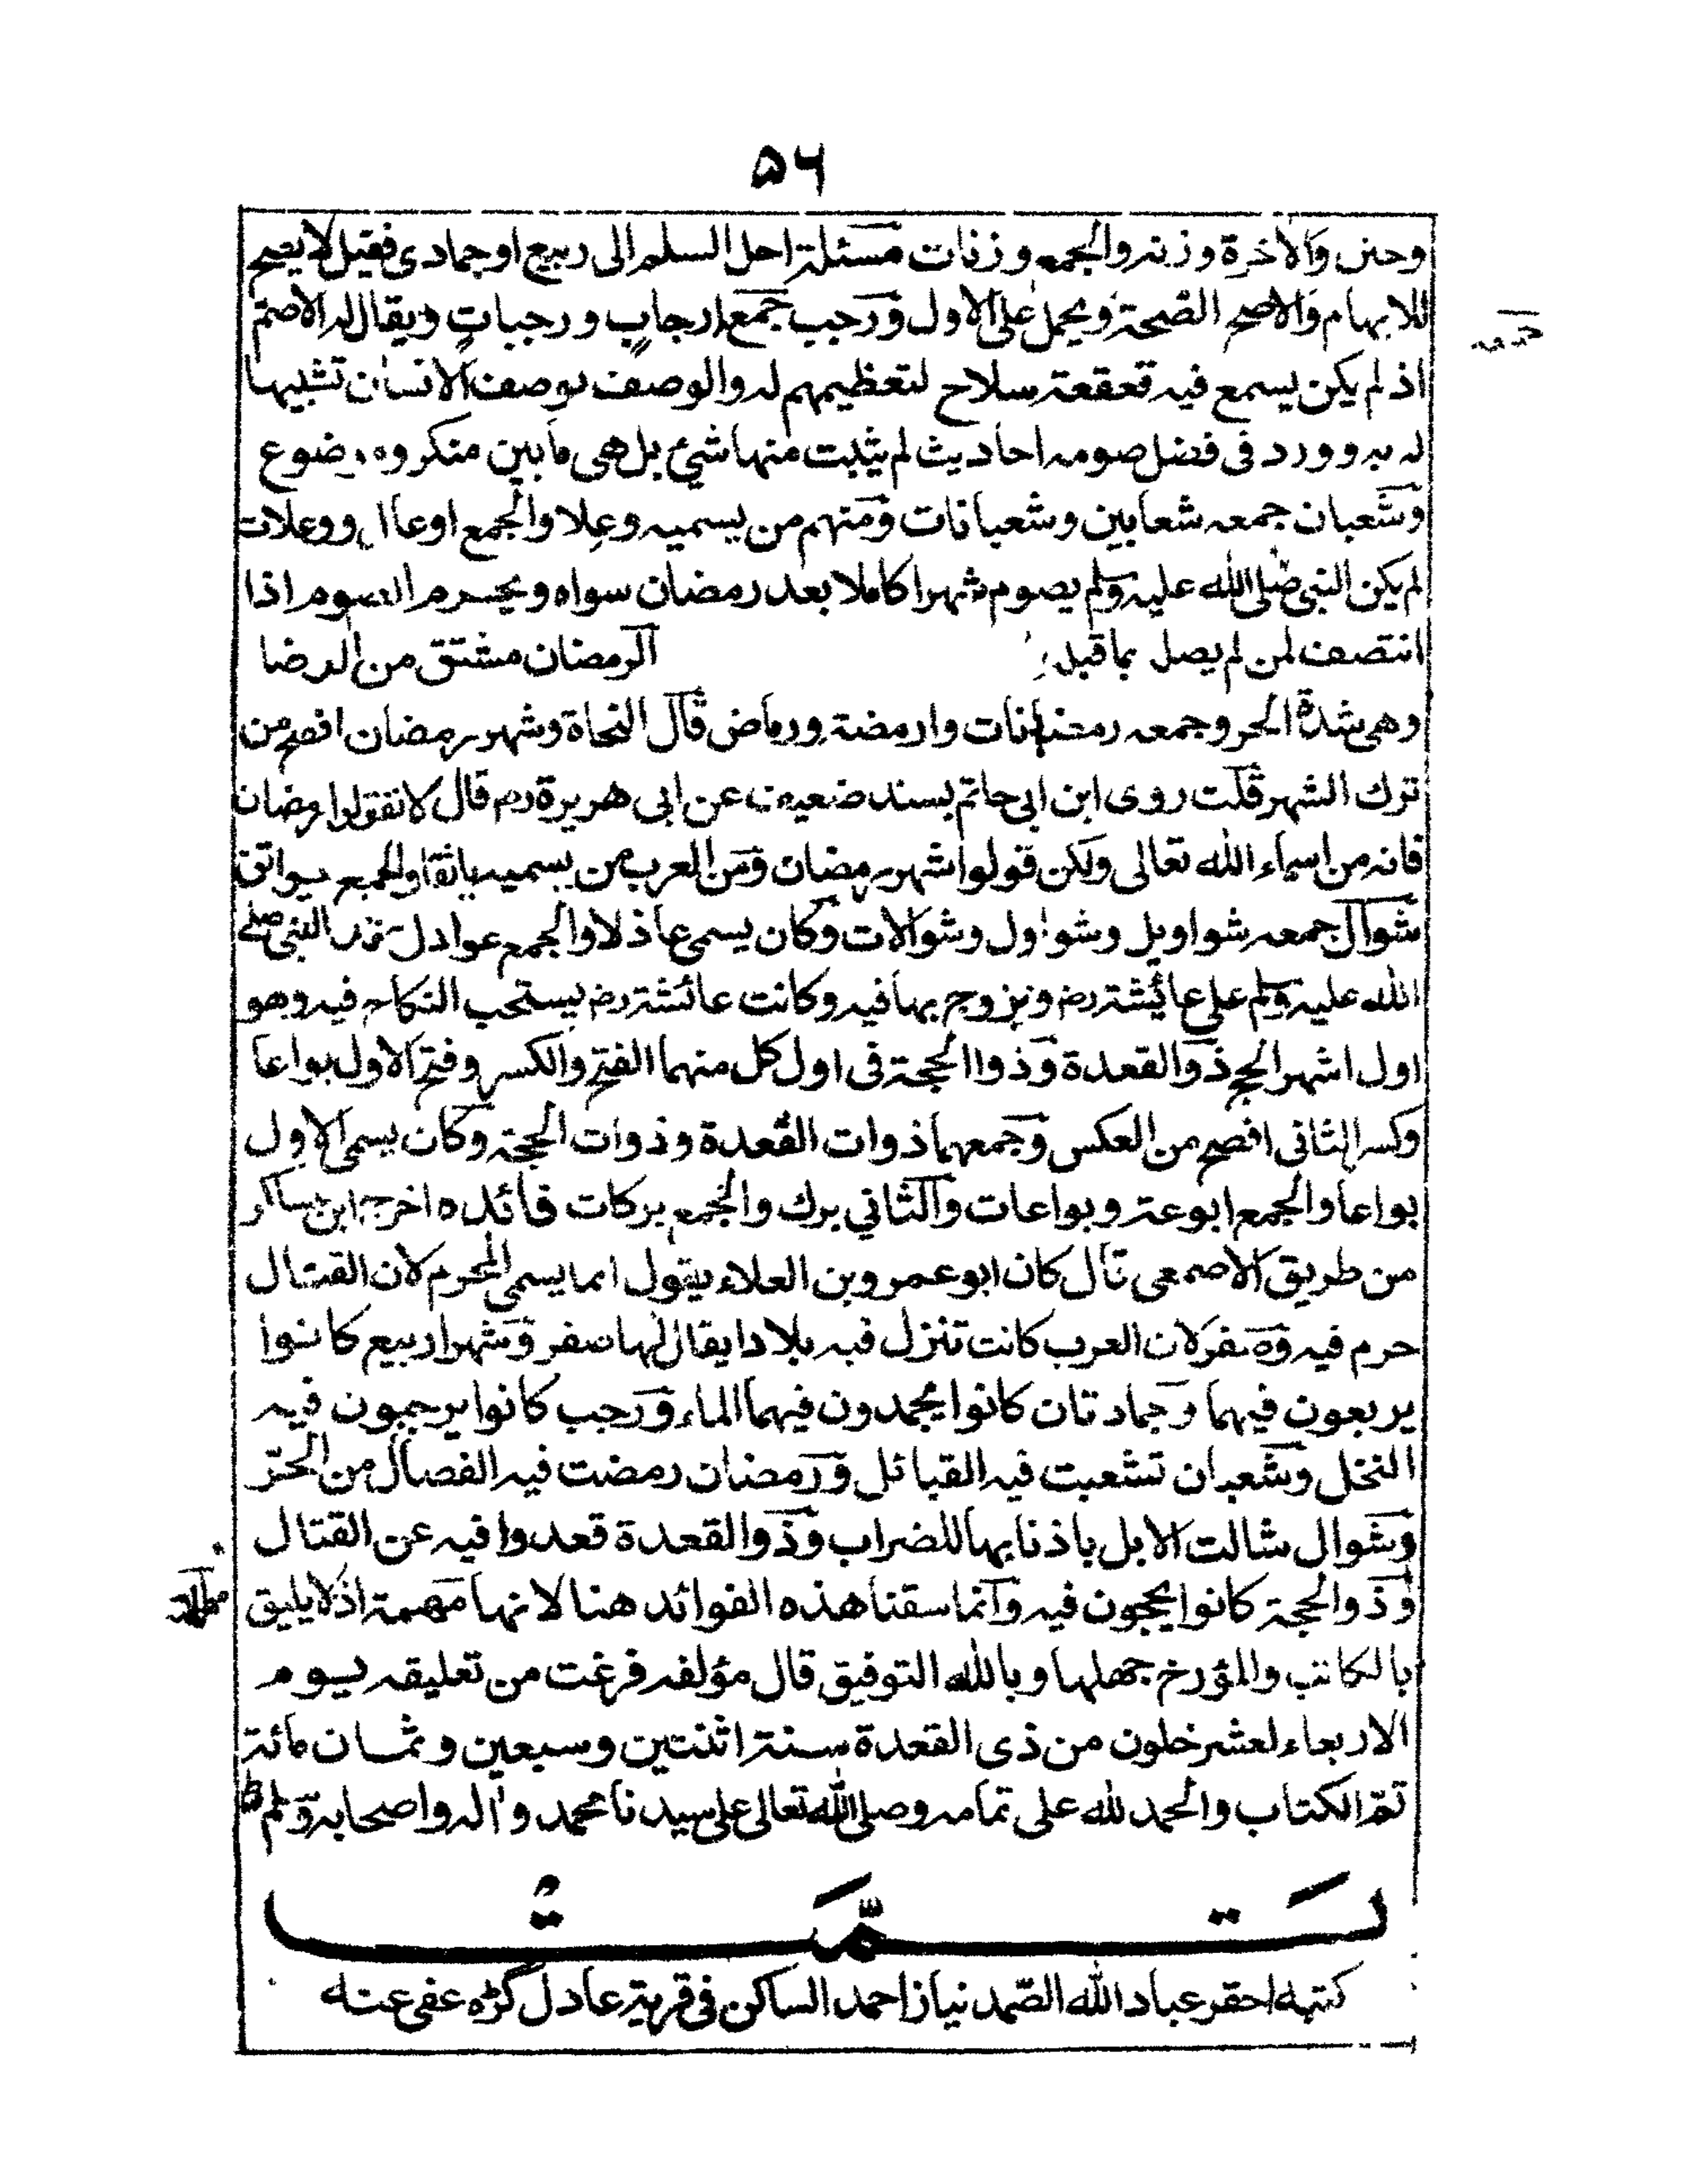 ۵۶
وحنن والآخرة وزنة والجمع وزنات مسئلة احل السلم الى ربيع او جمادى فقيل لا يصح
للابهام والاصح الصحة ويحمل على الاول ورجب جمع ارجاب ورجبات ويقال له الاصم
اذ لم يكن يسمع فيه قعقعة سلاح لتعظيمهم له والوصف بوصف الانسان تشبيها
له به وورد فى فضل صومه احاديث لم يثبت منها شئ بل هى مابين منكر وموضوع
وشعبان جمعه شعابين وشعبانات ومنهم من يسميه وعلا والجمع اوعال ووعلات
لم يكن النبى صلى الله عليه وسلم يصوم شهرا كاملا بعد رمضان سواه ويحرم الصوم اذا
انتصف لمن لم يصل بما قبله الرمضان مشتق من الرمضا
وهى شدة الحر وجمعه رمضانات وارمضة ورماض قال النحاة وشهر رمضان افصح من
ترك الشهر قلت روى ابن ابى حاتم بسند ضعيف عن ابى هريرة رض قال لا تقولوا رمضان
فانه من اسماء الله تعالى ولكن قولوا شهر رمضان ومن العرب من يسميه ناتقا والجمع نواتق
شوال جمعه شواويل وشواول وشوالات وكان يسمى عاذلا والجمع عواذل عقد النبى صلى
الله عليه وسلم على عائشة رض وتزوج بها فيه وكانت عائشة رض يستحب النكاح فيه وهو
اول اشهر الحج ذو القعدة وذوا الحجة فى اول كل منهما الفتح والكسر وفتح الاول بواعا
وكسر الثانى افصح من العكس وجمعهما ذوات القعدة وذوات الحجة وكان يسمى الاول
بواعا والجمع ابوعة وبواعات والثانى برك والجمع بركات فائده اخرج ابن عساكر
من طريق الاصمعى قال كان ابو عمرو بن العلاء يقول انما يسمى المحرم لان القتال
حرم فيه وصفر لان العرب كانت تنزل فيه بلادا يقال لها صفر وشهرا ربيع كانوا
يربعون فيهما وجمادتان كانوا يجمدون فيهما الماء ورجب كانوا يرجبون فيه
النخل وشعبان تشعبت فيه القبائل ورمضان رمضت فيه الفصال من الحر
وشوال شالت الابل باذنابها للضراب وذو القعدة قعدوا فيه عن القتال
وذو الحجة كانوا يحجون فيه وانما سقنا هذه الفوائد هنا لانها مهمة اذ لا يليق
بالكاتب والمؤرخ جهلها وبالله التوفيق قال مؤلفه فرغت من تعليقه يوم
الاربعاء لعشر خلون من ذى القعدة سنة اثنتين وسبعين وثمان مائة
تم الكتاب والحمد لله على تمامه وصلى الله تعالى على سيدنا محمد وآله واصحابه وسلم
تَمَّتْ
كتبه احقر عباد الله الصمد نياز احمد الساكن فى قرية عادل گڑه عفى عنه